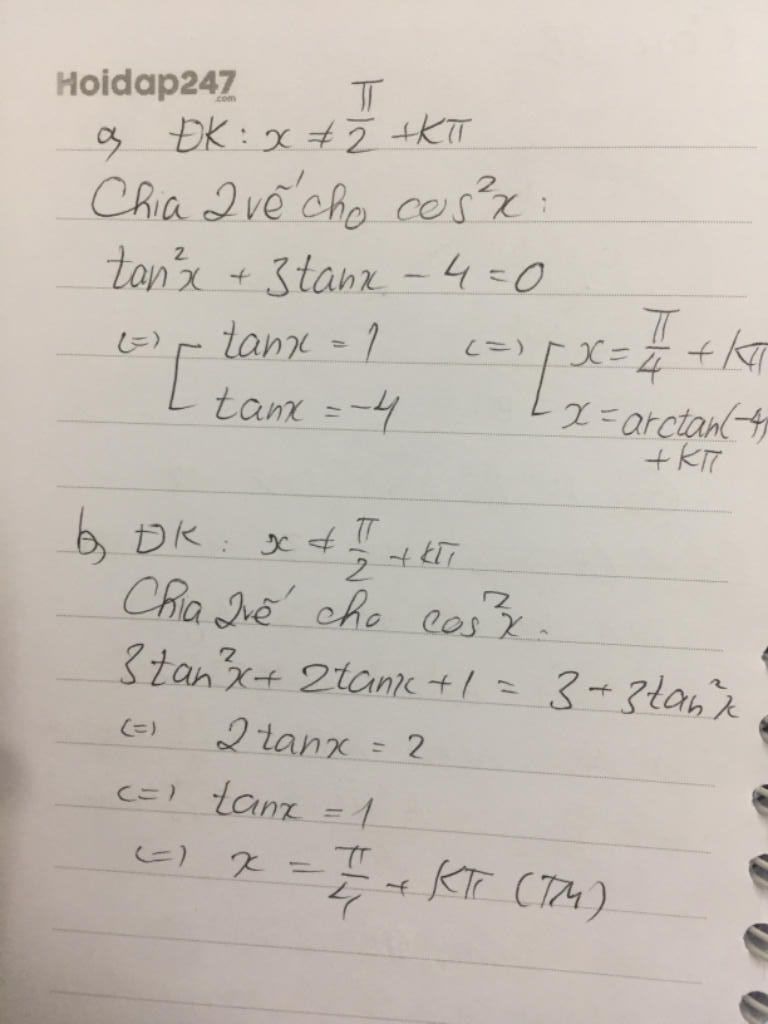 Hoidap247
.com
a, ĐK: x ≠ π/2 + Kπ
Chia 2 vế cho cos²x :
tan²x + 3tanx - 4 = 0
(=) [ tanx = 1 (=) [ x = π/4 + kπ
tanx = -4 x = arctan(-4)
+ Kπ
b, ĐK : x ≠ π/2 + kπ
Chia 2 vế cho cos²x.
3tan²x + 2tanx + 1 = 3 + 3tan²x
(=) 2tanx = 2
(=) tanx = 1
(=) x = π/4 + Kπ (TM)